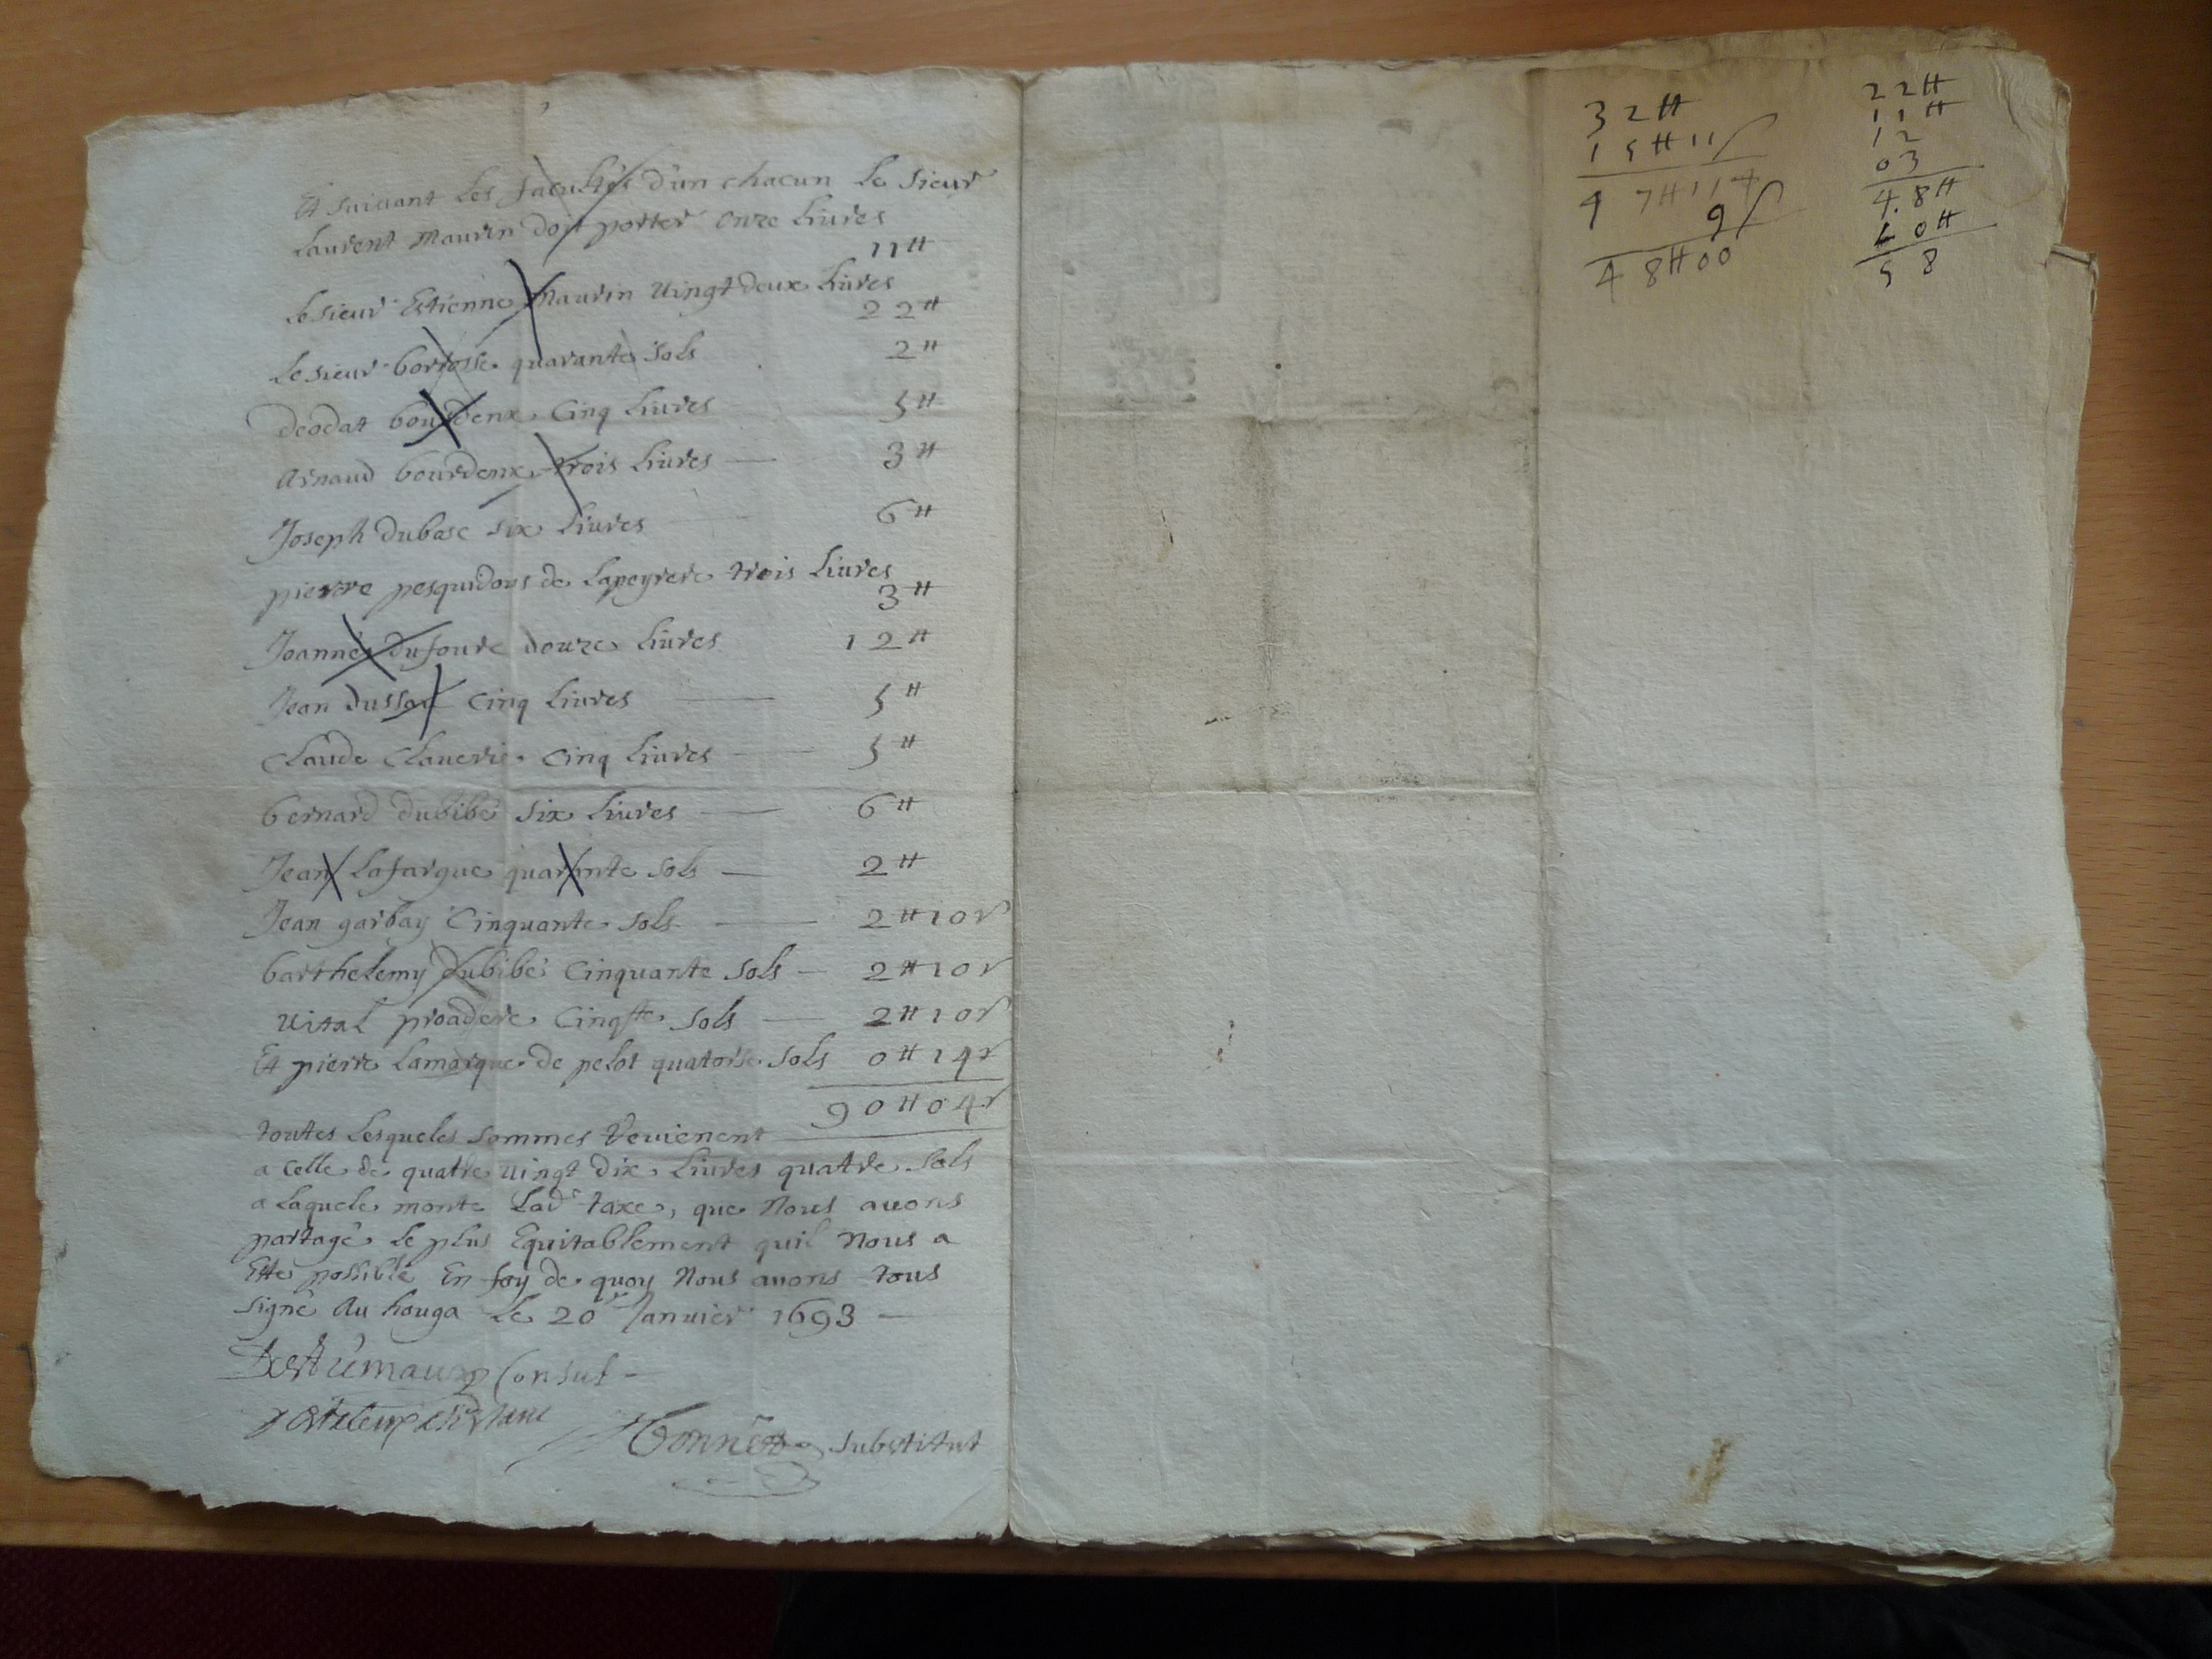 Et suivant les facultés d'un chacun le sieur
Laurent Maurin doit porter onze livres
11 ₶
le sieur Estienne Maurin vingt deux livres
22 ₶
le sieur quarante sols 2 ₶
deodat bourdenx cinq livres 5 ₶
Arnaud bourdenx trois livres — 3 ₶
Joseph dubosc six livres — 6 ₶
pierre pesquidous de Lapeyrere trois livres
3 ₶
Joannes dufourc douze livres 12 ₶
Jean dussau cinq livres — 5 ₶
Claude Claverie cinq livres — 5 ₶
bernard dubibé six livres — 6 ₶
Jean Lafargue quarante sols — 2 ₶
Jean garbay Cinquante sols — 2 ₶ 10 s
barthelemy dubibé Cinquante sols — 2 ₶ 10 s
vital proadere Cinqte sols — 2 ₶ 10 s
Et pierre Lamarque de pelot quatorse sols 0 ₶ 14 s
90 ₶ 04 s
toutes lesqueles sommes revienent
a celle de quatre vingt dix livres quatre sols
a laquele monte lade taxe, que nous avons
partagé le plus Equitablement quil nous a
Este possible En foy de quoy nous avons tous
signé Au houga le 20e Janvier 1693 —
Consul —
substitut
32 ₶
15 ₶ 11 s
47 ₶ 11
9 s
48 ₶ 00
22 ₶
11 ₶
12
03
48 ₶
10 ₶
58